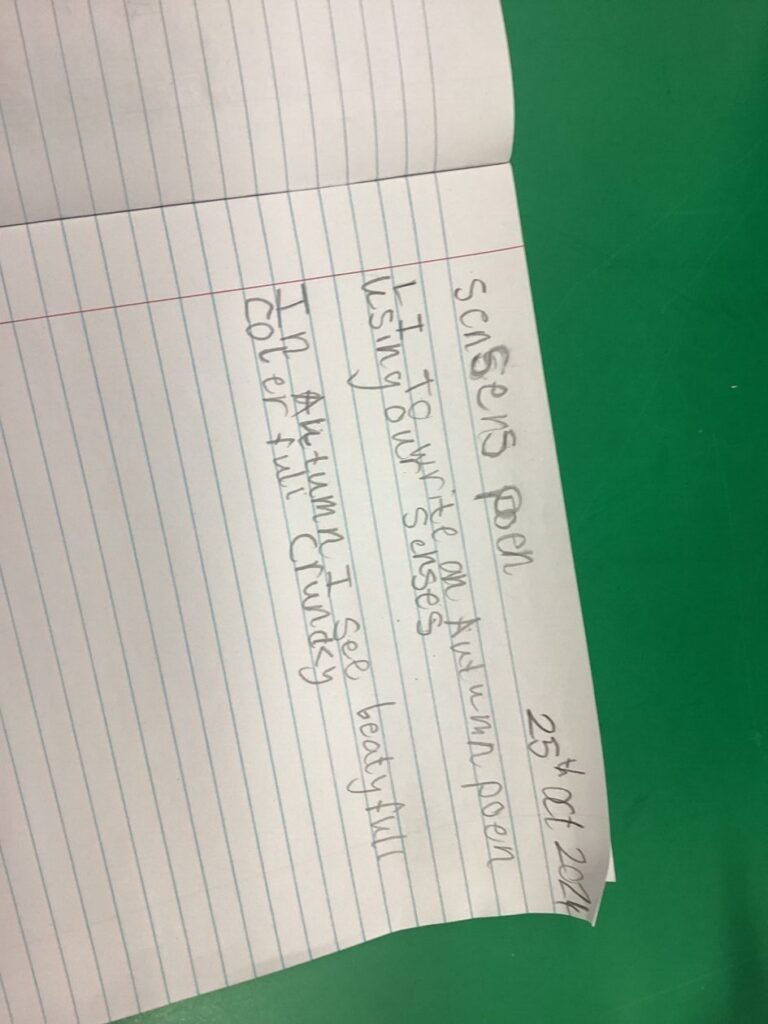 25th oct 2024
sensens poen
LI to write an Autumn poen
using our senses
In Autumn I see beatyfull
coler full crundsy